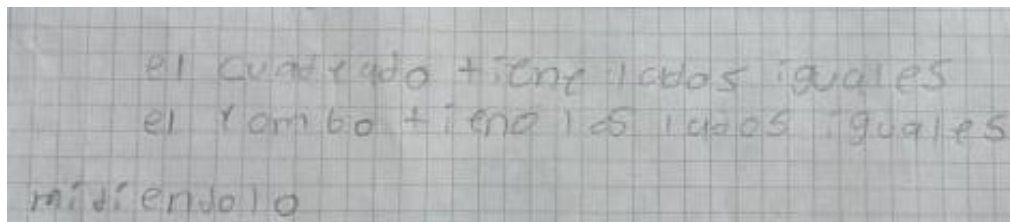 el cuadrado tiene lados iguales
el rombo tiene los lados iguales
midiendolo